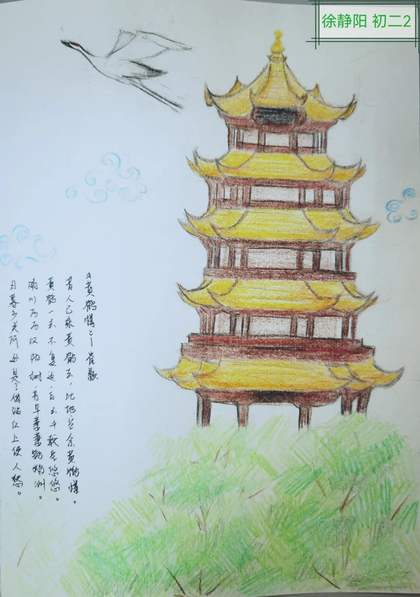 徐静阳 初二2
《黄鹤楼》—崔颢
昔人已乘黄鹤去，此地空余黄鹤楼。
黄鹤一去不复返，白云千载空悠悠。
晴川历历汉阳树，芳草萋萋鹦鹉洲。
日暮乡关何处是？烟波江上使人愁。